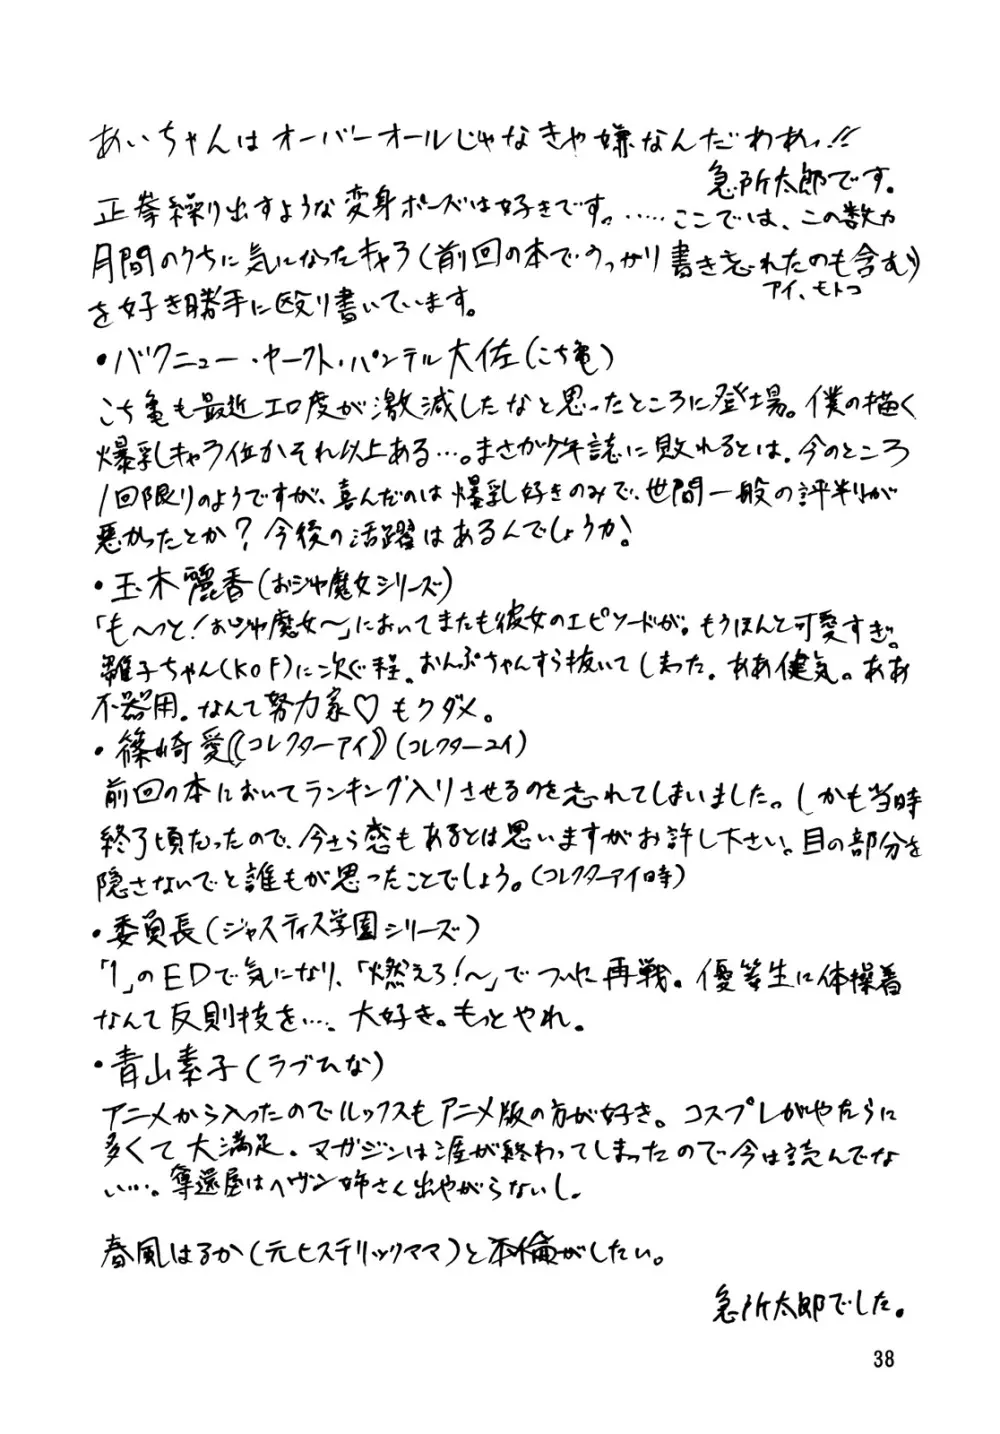 あいちゃんはオーバーオールじゃなきゃ嫌なんだわぁっ!!
急所太郎です。
正拳繰り出すような変身ポーズは好きです。……ここでは、この数カ
月間のうちに気になったキャラ(前回の本でうっかり書き忘れたのも含む)
アイ、モトコ
を好き勝手に殴り書いています。
・バクニュー・ヤークト・パンテル大佐(こち亀)
こち亀も最近エロ度が激減したなと思ったところに登場。僕の描く
爆乳キャラ位かそれ以上ある…。まさか少年誌に敗れるとは。今のところ
1回限りのようですが、喜んだのは爆乳好きのみで、世間一般の評判が
悪かったとか?今後の活躍はあるんでしょうか!
・玉木麗香(おジャ魔女シリーズ)
「も〜っと!おジャ魔女〜」においてまたも彼女のエピソードが。もうほんと可愛すぎ。
雛子ちゃん(KOF)に次ぐ程。おんぷちゃんすら抜いてしまった。ああ健気。ああ
不器用。なんて努力家♡もうダメ。
・篠崎愛(《コレクターアイ》)(コレクターユイ)
前回の本においてランキング入りさせるのを忘れてしまいました。しかも当時
終了頃だったので、今さら感もあるとは思いますがお許し下さい。目の部分を
隠さないでと誰もが思ったことでしょう。(コレクターアイ時)
・委員長(ジャスティス学園シリーズ)
「1」のEDで気になり、「燃えろ!〜」でついに再戦。優等生に体操着
なんて反則技を…、大好き。もっとやれ。
・青山素子(ラブひな)
アニメから入ったのでルックスもアニメ版の方が好き。コスプレがやたらに
多くて大満足。マガジンは涯が終わってしまったので今は読んでな
い…。奪還屋はヘヴン姉さん出やがらないし。
春風はるか(元ヒステリックママ)と不倫がしたい。
急所太郎でした。
38